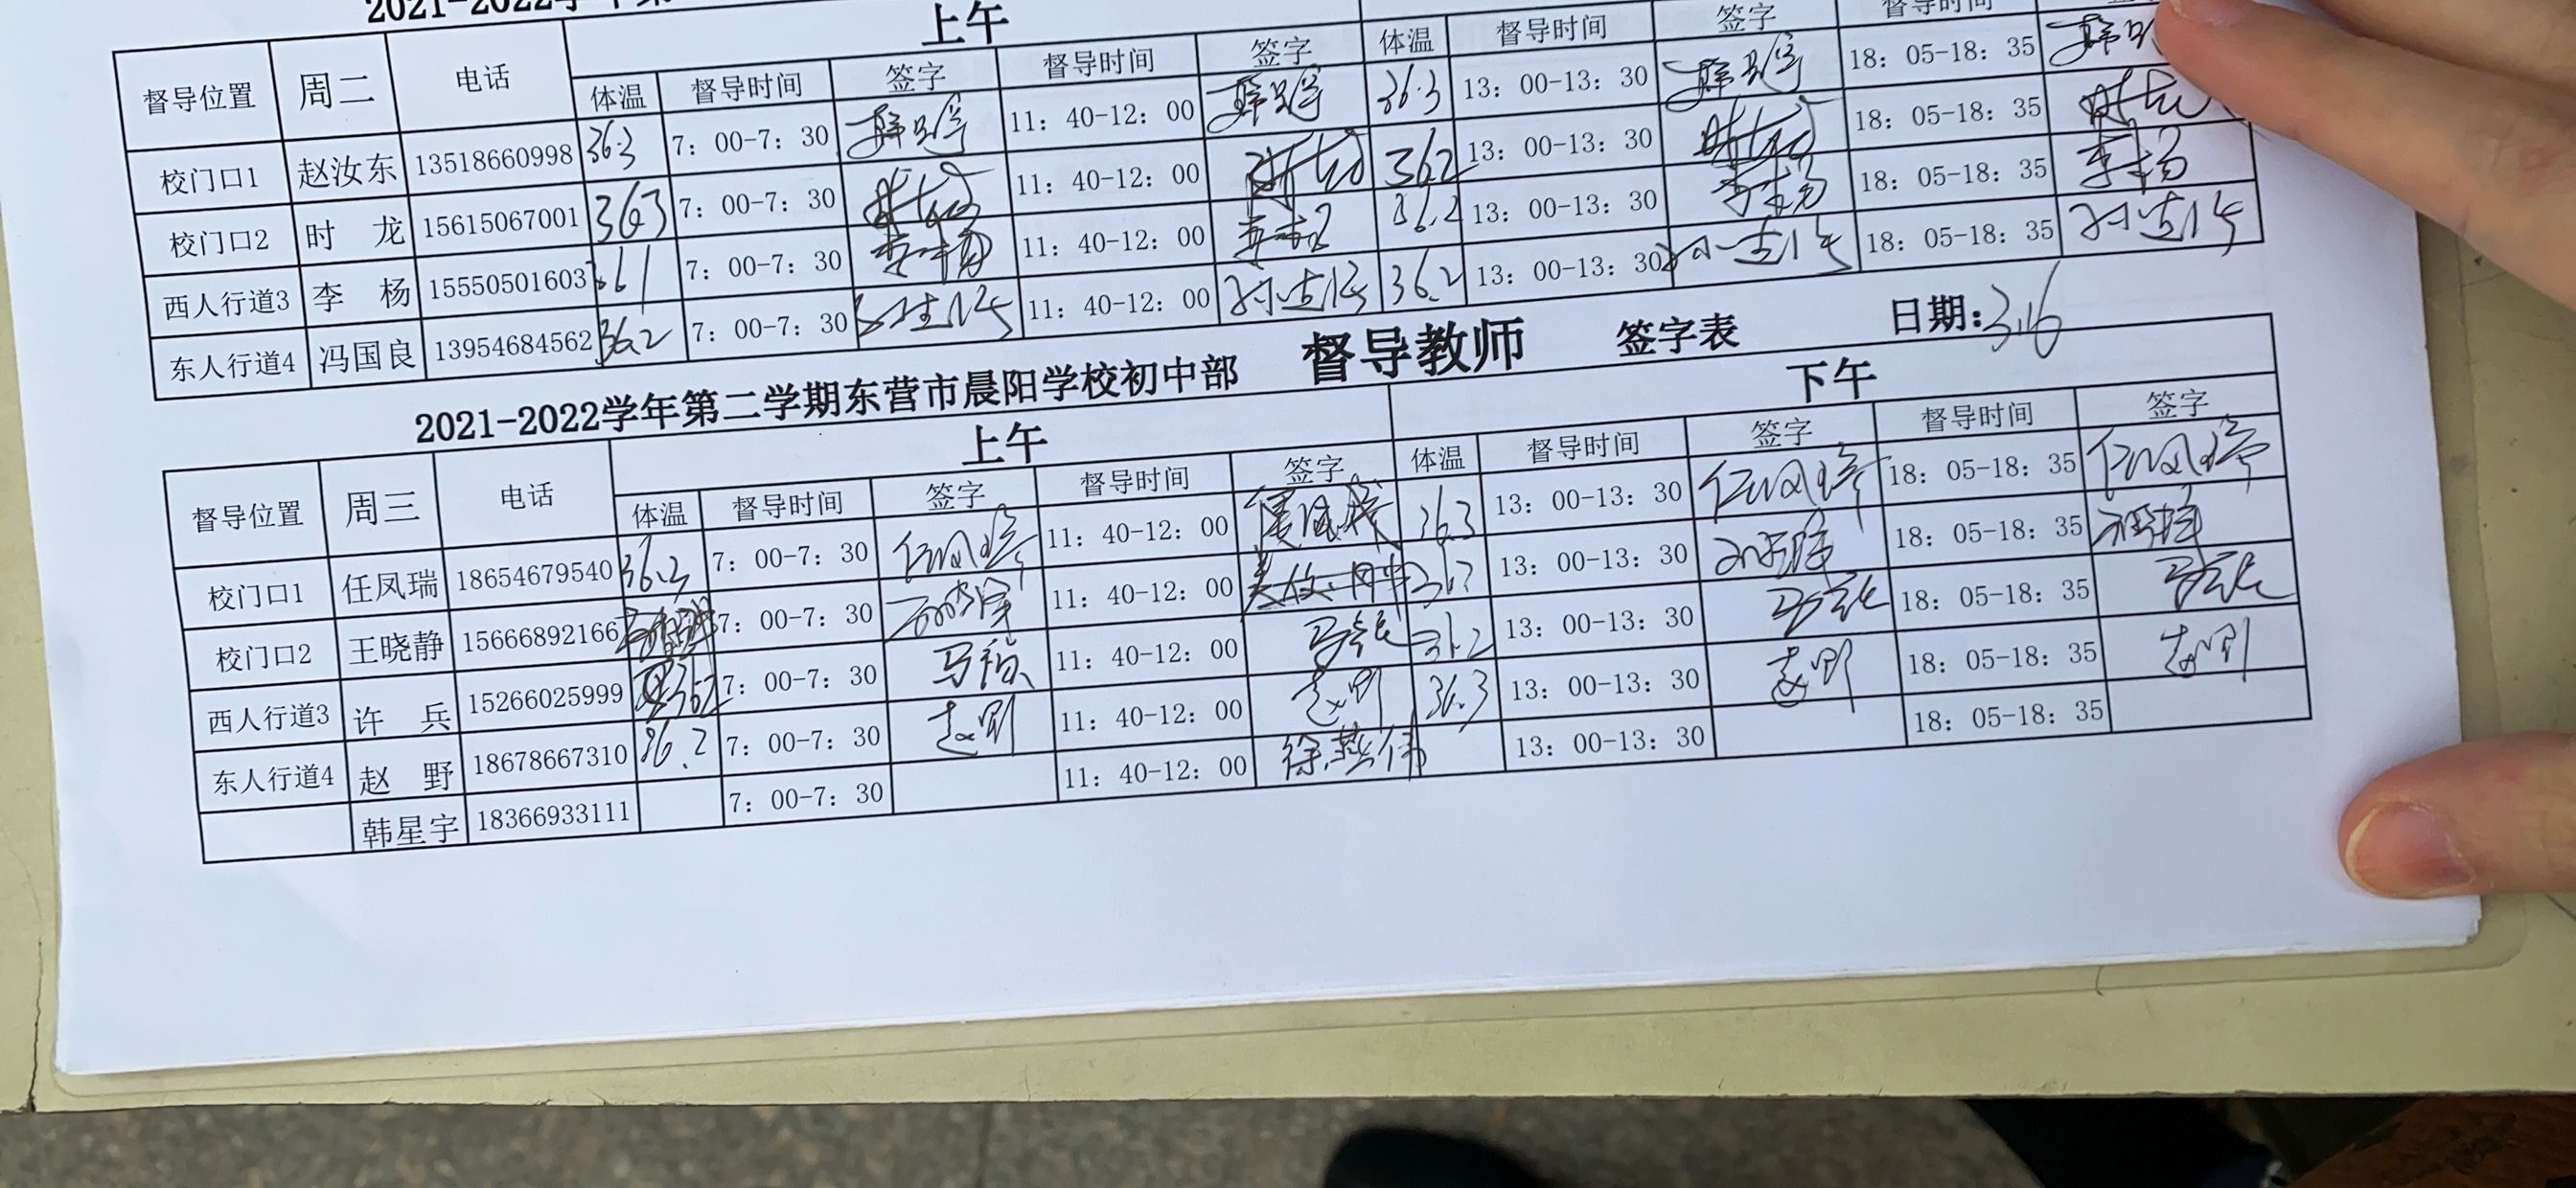 2021-2022学年第
上午
督导位置 周二 电话 体温 督导时间 签字 督导时间 签字 体温 督导时间 签字 督导时间
校门口1 赵汝东 13518660998 36.3 7：00-7：30 11：40-12：00 36.3 13：00-13：30 18：05-18：35
校门口2 时 龙 15615067001 363 7：00-7：30 时龙 11：40-12：00 时龙 362 13：00-13：30 时龙 18：05-18：35 时龙
西人行道3 李 杨 15550501603 361 7：00-7：30 李杨 11：40-12：00 李杨 36.2 13：00-13：30 李杨 18：05-18：35 李杨
东人行道4 冯国良 13954684562 36.2 7：00-7：30 11：40-12：00 36.2 13：00-13：30 18：05-18：35
2021-2022学年第二学期东营市晨阳学校初中部 督导教师 签字表 日期：3.16
上午 下午
督导位置 周三 电话 体温 督导时间 签字 督导时间 签字 体温 督导时间 签字 督导时间 签字
校门口1 任凤瑞 18654679540 36.3 7：00-7：30 任凤瑞 11：40-12：00 36.3 13：00-13：30 任凤瑞 18：05-18：35 任凤瑞
校门口2 王晓静 15666892166 7：00-7：30 11：40-12：00 13：00-13：30 18：05-18：35
西人行道3 许 兵 15266025999 362 7：00-7：30 11：40-12：00 13：00-13：30 18：05-18：35
东人行道4 赵 野 18678667310 36.2 7：00-7：30 11：40-12：00 36.3 13：00-13：30 18：05-18：35
韩星宇 18366933111 7：00-7：30 11：40-12：00 徐燕伟 13：00-13：30 18：05-18：35